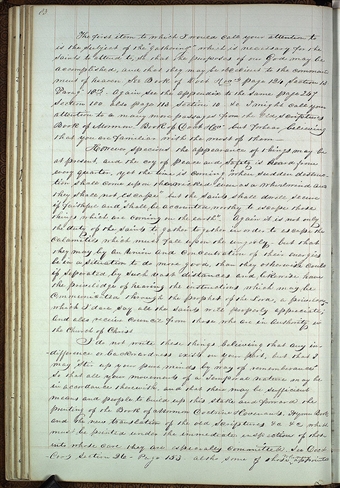 The first item to which I would call your attention to
is the subject of the "gathering" which is necessary for the
Saints to attend to, so that the purposes of our God may be
accomplished, and that they may be obedient to the command-
ment of heaven. See Book of Cov
Again see the appendix to the same page 247
Section 100. also page 118 Section 10. &c I might call your
attention to a many more passages from the Old Scriptures
Book of Mormon Book of Cov but forbear, believing
that you are familiar with the most of them.
However specious the appearance of things may be
at present, and the cry of Peace and Safety is heard from
every quarter. yet the time is coming when sudden destruc-
tion shall come upon the wicked even as a whirlwind and
they shall not escape: but the Saints shall dwell secure
if faithful and shall be accounted worthy to escape those
things which are coming on the earth. Again it is not only
the duty of the Saints to gather together in order to escape the
calamities which must fall upon the ungodly, but that
they may by an union and concentration of their energies
be in a situation to do more good than they otherwise could
if separated by such vast distances and likewise have
the priviledge of hearing the instructions which may be
communicated through the prophet of the Lord, a priviledge
which I dare say all the Saints will properly appreciate;
and also receive council from those who are in Authority in
the Church of Christ
I do not write these things believing that any in-
difference or backwardness exists on your part, but that I
may "stir up your pure minds by way of remembrance"
so that all your movements of a temporal nature may be
in accordance therewith, and that there may be sufficient
means and people to build up this stake and forward the
printing of the Book of Mormon Doctrine & Covenants, Hymn Book
and the new translation of the old Scriptures &c &c which
must be printed under the immediate inspection of those
into whose care they are especially committed. See Book
Cov Section 36 Page 153 also some of those appointed